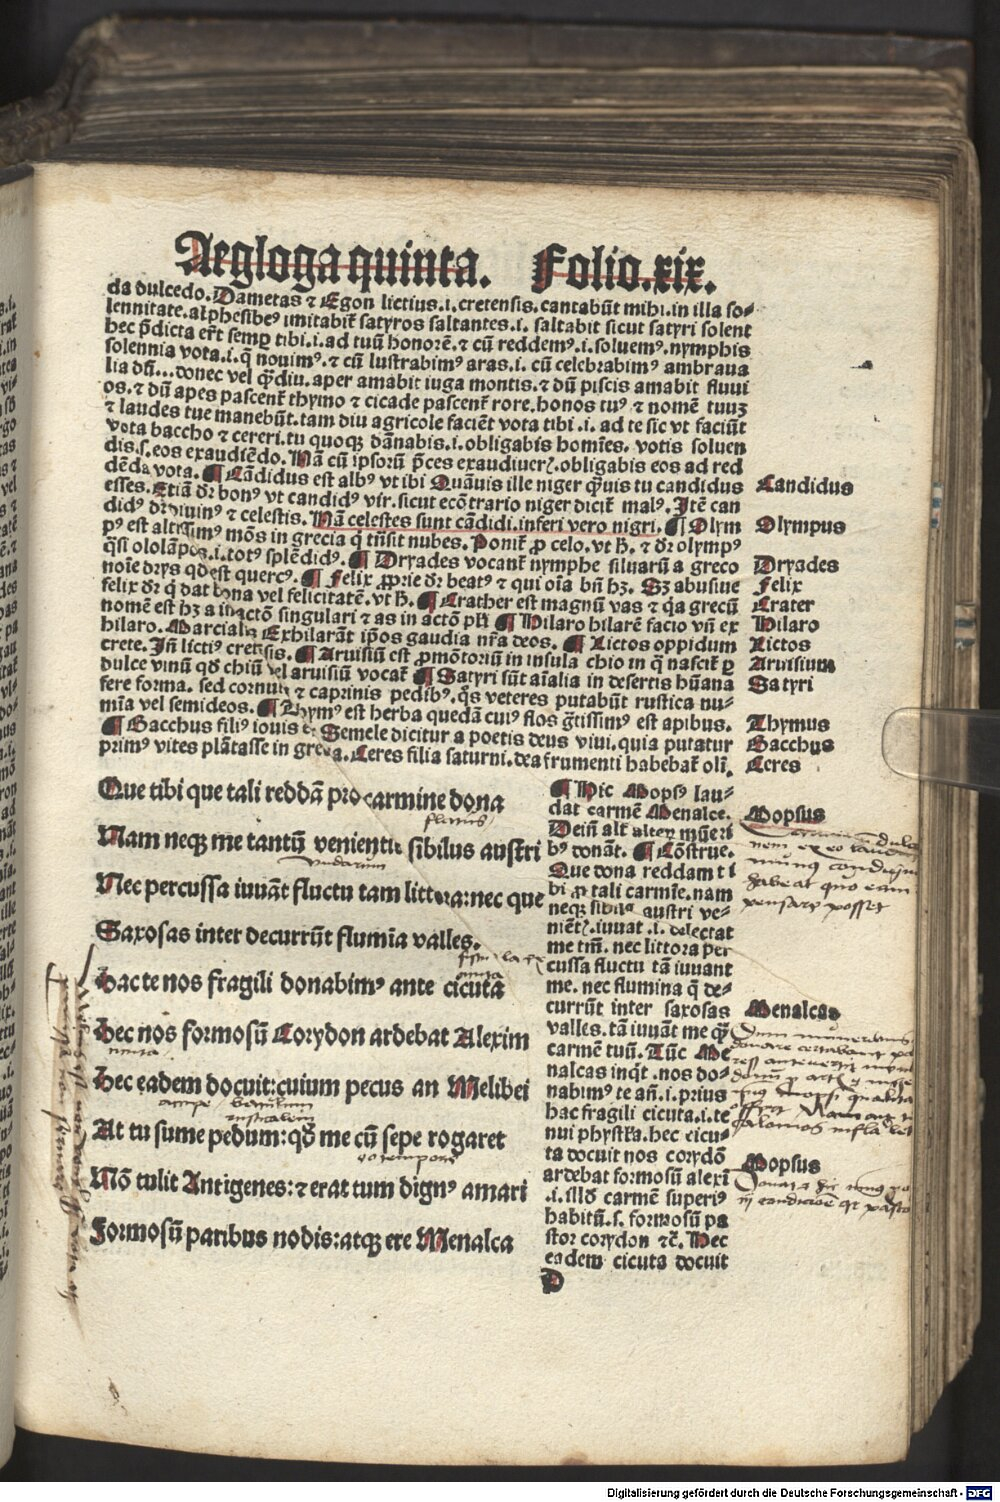 Aegloga quinta. Folio.xix.
da dulcedo. Dametas ⁊ Egon lictius.i.cretensis.cantabūt mihi.in illa so-
lennitate.alphesibeꝰ imitabit̄ satyros saltantes.i. saltabit sicut satyri solent
hec p̄dicta er̄t semꝑ tibi.i.ad tuū honorē.⁊ cū reddemꝰ.i.soluemꝰ.nymphis
solennia vota.i.q̄ nouimꝰ.⁊ cū lustrabimꝰ aras.i. cū celebrabimꝰ ambraua
lia dū... donec vel q̄diu.aper amabit iuga montis.⁊ dū piscis amabit fluui
os.⁊ dū apes pascent̄ thymo ⁊ cicade pascent̄ rore.honos tuꝰ ⁊ nomē tuuʒ
⁊ laudes tue manebūt.tam diu agricole faciēt vota tibi .i. ad te sic vt faciūt
vota baccho ⁊ cereri.tu quoqꝫ dānabis.i.obligabis homīes. votis soluen
dis.s.eos exaudiēdo. Nā cū ipsorū p̄ces exaudiuerꝭ.obligabis eos ad red
dēda vota. ¶ Cādidus est albꝰ vt ibi Quāuis ille niger q̄uis tu candidus
esses. Etiā dr̄ bonꝰ vt candidꝰ vir.sicut ecōtrario niger dicit̄ malꝰ. Itē can
didꝰ dr̄ diuinꝰ ⁊ celestis. Nā celestes sunt cādidi.inferi vero nigri. ¶ Olym
pꝰ est altissimꝰ mōs in grecia q̄ trāsit nubes. Ponit̄ ꝓ celo.vt ħ. ⁊ dr̄ olympꝰ
q̄si ololāpos.i.totꝰ splēdidꝰ. ¶ Dryades vocant̄ nymphe siluarū a greco
noīe drys qd̄ est quercꝰ. ¶ Felix ꝓprie dr̄ beatꝰ ⁊ qui oīa bn̄ hʒ. Sʒ abusiue
felix dr̄ q̄ dat bona vel felicitatē.vt ħ. ¶ Crather est magnū vas ⁊ q̄a grecū
nomē est hʒ a in actō singulari ⁊ as in actō pl̄i ¶ Hilaro hilarē facio vn̄ ex
hilaro. Marcialis Exhilarāt ip̄os gaudia nr̄a deos. ¶ Lictos oppidum
crete. In̄ lictiꝰ cretēsis. ¶ Aruisiū est ꝓmōtoriū in insula chio in q̄ nascit̄ p
dulce vinū qd̄ chiū vel aruisiū vocat̄ ¶ Satyri sūt aīalia in desertis hūana
fere forma. sed cornuti ⁊ caprinis pedibꝰ.q̄s veteres putabūt rustica nu-
mīa vel semideos. ¶ Thymꝰ est herba quedā cuiꝰ flos ḡtissimꝰ est apibus.
¶ Bacchus filiꝰ iouis et Semele dicitur a poetis deus vini.quia putatur
primꝰ vites plātasse in grecia. Ceres filia saturni.dea frumenti habebat̄ oli.
Candidus
Olympus
Dryades
Felix
Crater
Hilaro
Lictos
Aruisium
Satyri
Thymus
Bacchus
Ceres
Que tibi que tali reddā pro carmine dona
Nam neqꝫ me tantū venientis sibilus austri
Nec percussa iuuāt fluctu tam littora:nec que
Saxosas inter decurrūt flumīa valles.
Hac te nos fragili donabimꝰ ante cicuta
Hec nos formosū Corydon ardebat Alexim
Hec eadem docuit:cuium pecus an Melibei
At tu sume pedum:qd̄ me cū sepe rogaret
Nō tulit Antigenes:⁊ erat tum dignꝰ amari
Formosū paribus nodis:atqꝫ ere Menalca
¶ Hic Mopsꝰ lau-
dat carmē Menalce.
Dein̄ alt̄ alteꝝ mūeri
bꝰ donāt. ¶ Cōstrue.
Que dona reddam ti
bi ꝓ tali carmīe.nam
neqꝫ sibilꝰ austri ve-
niētꝭ.iuuat .i. delectat
me tm̄. nec littora per
cussa fluctu tā iuuant
me. nec flumina q̄ de-
currūt inter saxosas
valles.tā iuuāt me q̄ꝫ
carmē tuū. Tūc Me
nalcas inq̄t .nos do-
nabimꝰ te an̄.i.prius
hac fragili cicuta.i.te
nui phystĺa.hec cicu-
ta docuit nos corydō
ardebat formosū alexī
.i. illd̄ carmē superiꝰ
habitū.s. formosū pa
stor corydon ⁊c̄. Hec
eadem cicuta docuit
D
Mopsus
Menalcas
Mopsus
Digitalisierung gefördert durch die Deutsche Forschungsgemeinschaft - DFG